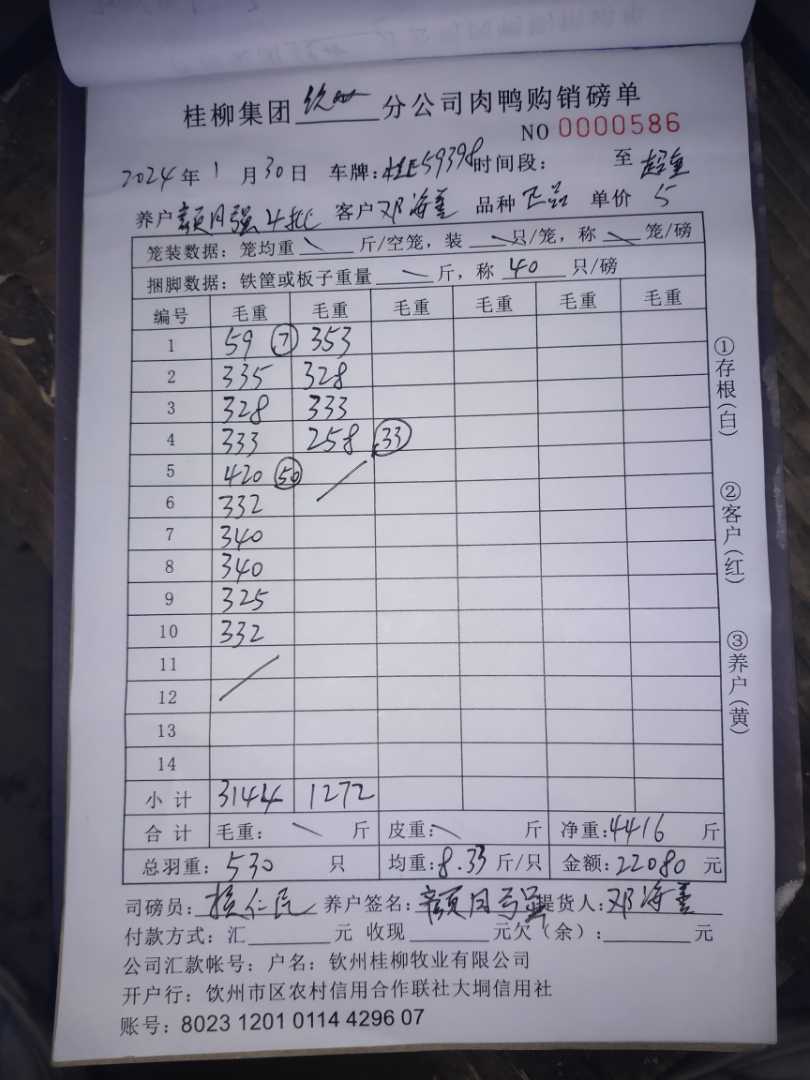 桂柳集团 钦州 分公司肉鸭购销磅单
NO 0000586
2024年1月30日 车牌:桂E59398 时间段: 至
养户 月强4批 客户 邓海 品种 正品 单价 5
笼装数据:笼均重 \ 斤/空笼,装 \ 只/笼,称 \ 笼/磅
捆脚数据:铁筐或板子重量 \ 斤,称 40 只/磅
编号 毛重 毛重 毛重 毛重 毛重 毛重
1 59 ⑦ 353
2 335 328
3 328 333
4 333 258 ㉝
5 420 ㊿ /
6 332
7 340
8 340
9 325
10 332
11
12
13
14
小计 3144 1272
合计 毛重: \ 斤 皮重: \ 斤 净重:4416 斤
总羽重:530 只 均重:8.33 斤/只 金额:22080 元
司磅员: 仁民 养户签名: 月强 提货人:邓海
付款方式:汇 元 收现 元欠(余): 元
公司汇款帐号:户名:钦州桂柳牧业有限公司
开户行:饮州市区农村信用合作联社大垌信用社
账号:8023 1201 0114 4296 07
①存根(白)
②客户(红)
③养户(黄)